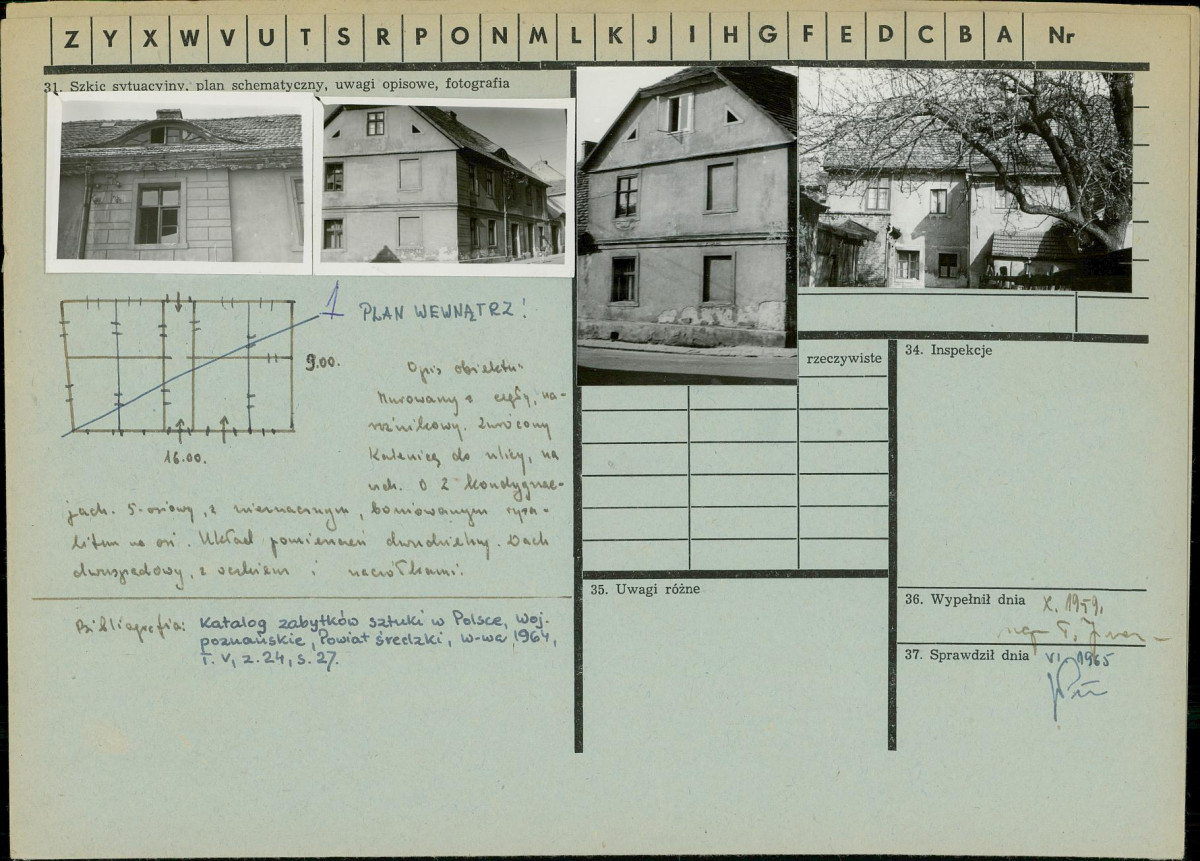 Z Y X W V U T S R P O N M L K J I H G F E D C B A Nr
31. Szkic sytuacyjny, plan schematyczny, uwagi opisowe, fotografia
1 PLAN WEWNĄTRZ!
9.00.
16.00.
Opis obiektu:
Murowany z cegły, na-
rożnikowy. Zwrócony
kalenicą do ulicy, na
rzucie
O 2 kondygnac-
jach. 5-osiowy, z nieznacznym, boniowanym ryza-
litem na osi. Układ pomieszczeń dwudzielny. Dach
dwuspadowy, z i naczółkami.
Bibliografia: Katalog zabytków sztuki w Polsce, woj.
poznańskie, Powiat średzki, w-wa 1964,
T. V, z. 24, s. 27.
rzeczywiste
34. Inspekcje
35. Uwagi różne
36. Wypełnił dnia X. 1959.
mgr
37. Sprawdził dnia VI 1965